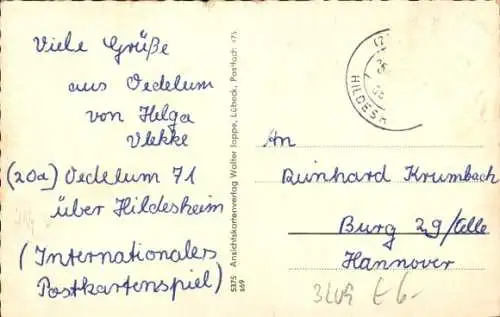 Viele Grüße
aus Oedelum
von Helga
Vlekke
(20a) Oedelum 71
über Hildesheim
(Internationales
Postkartenspiel)
5375 Ansichtskartenverlag Walter Jappe, Lübeck, Postfach 475
569
HILDESH
An
Reinhard Krumbach
Burg 29/Celle
Hannover
E 6-